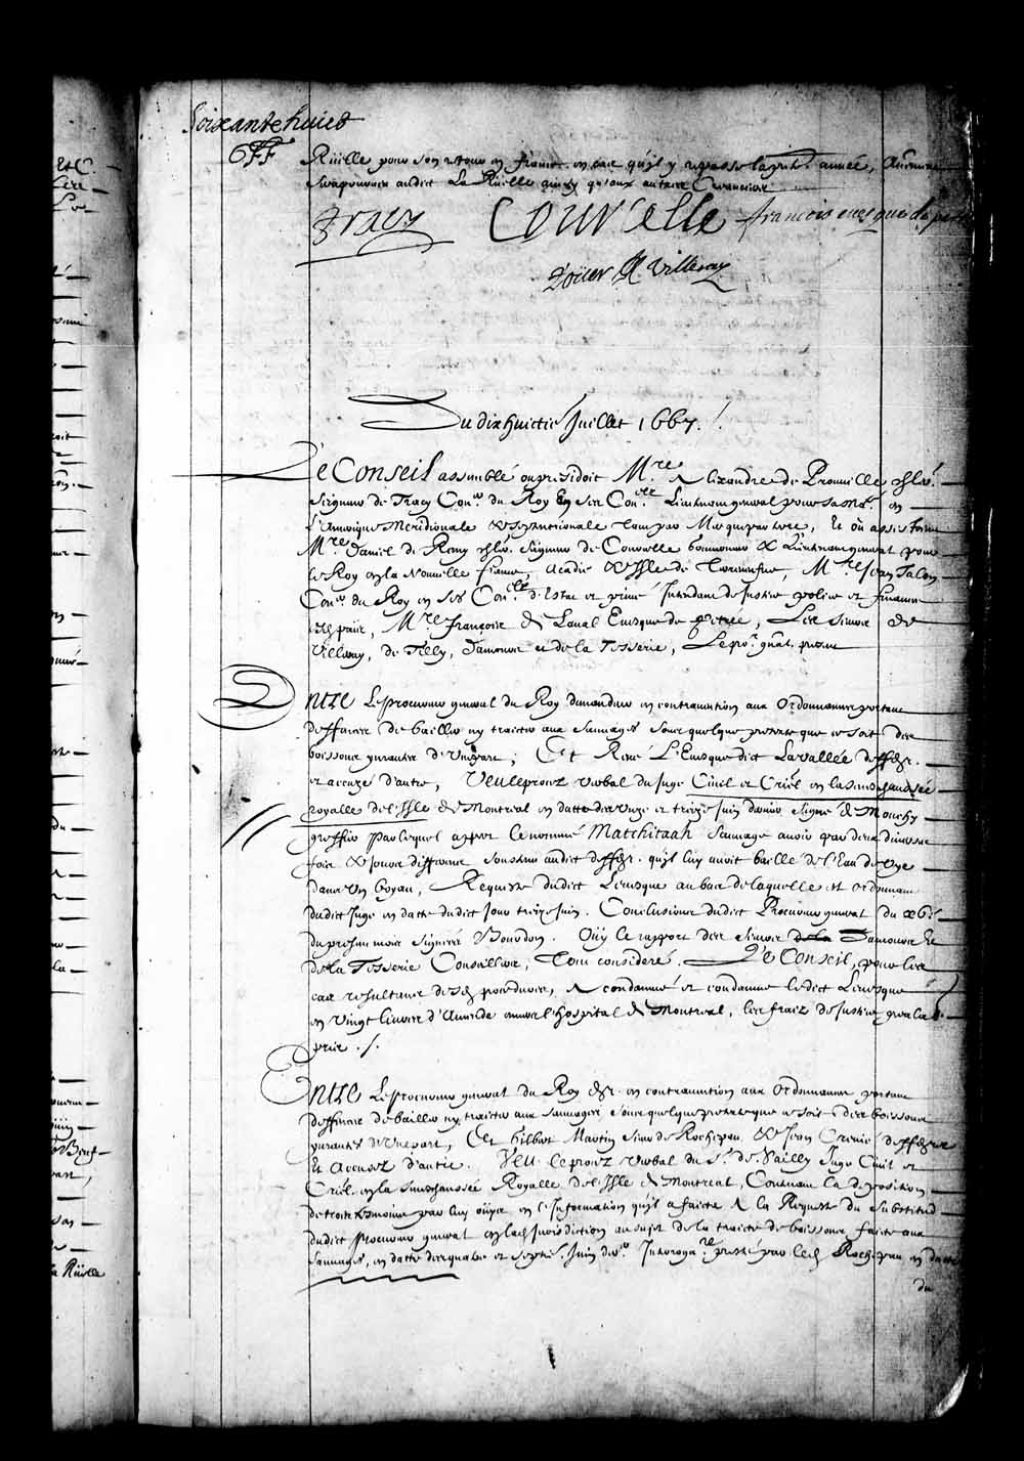 Soixante huict
Rüelle pour son retour en france en cas qu'il y repasse la p̃nte année,
au dict La Rüelle ainsy qu'aux autres Creanciers
Tracy Courcelle francois evesque de petrée
Roüer de Villeray
Du dix huictie Juillet 1667.
Le Conseil assemblé ou presidoit Mre Alexandre de Prouville chlr.
Seigneur de Tracy Conr. du Roy en ses Conls Lieutenant general pour sa Maté en
l'Amerique Meridionale & Septentrionale tant par Mer que par terre, Et où assistoient
Mre Daniel de Remy chlr. Seigneur de Courcelle Gouverneur & Lieutenant general pour
le Roy en la Nouvelle france, Acadie & Isle de Terreneufve, Mre Jean Talon
Conr. du Roy en ses Conls d'Estat et privé Intendant de Justice police et finances
esd. païs, Mre françois de Laval Evesque de Petrée, Les sieurs de
Villeray, de Tilly, Damours et de la Tesserie, Le pr. gnal. present
Entre Le procureur general du Roy demandeur en contravention aux Ordonnances portans
deffences de bailler ny traicter aux Sauvages sous quelque pretexte que ce soit des
boissons enyvrantes d'Une part; Et René L'Evesque dict Lavallée deffendr.
et accuzé d'autre, Veu le procez verbal du Juge Civil et Criel en la Senechaussée
royalle de l'Isle de Montreal en datte des unze et treize Juin dernier signé de Mouchy
greffier par lequel appert le nommé Matchitaah Sauvage avoir par deux diverses
fois & jours differens soustenu audict deffendr. qu'il luy avoit baillé de l'Eau de vye
dans Un boyau, Requeste dudict Levesque au bas de laquelle est ordonnance
dudict Juge en datte dudict jour treize Juin. Conclusions dudict Procureur general du
du present mois signées Bourdon. Oüy le rapport des sieurs de la Damours Et
de la Tesserie Conseillers, Tout consideré. Le Conseil, pour les
cas resultans desd. procedures, a condamné et condamne ledict Levesque
en vingt livres d'Amende envers l'hospital de Montreal, les frais de Justice prealablement
pris ./.
Entre Le procureur general du Roy dr. en contravention aux Ordonnances portans
deffences de bailler ny traicter aux Sauvages sous quelque pretexte que ce soit des boissons
enyvrantes d'Une part, Et Gilbert Martin sieur de Rochepau & Jean Crevié deffendeurs
Et Accusez d'autre. Veu le procez verbal du Sr. de Sailly Juge Civil et
Criel. en la Senechaussée Royalle de l'Isle de Montreal, Contenant la deposition
de trois temoins par luy oüys en l'Information qu'il a faicte A la Requeste du Substitud
dudict Procureur general en lad. Jurisdiction au sujet de la traicte de boissons faicte aux
Sauvages, en datte des quatre et septie. Juin Interogare. presté par led. Rochepau en datte
du